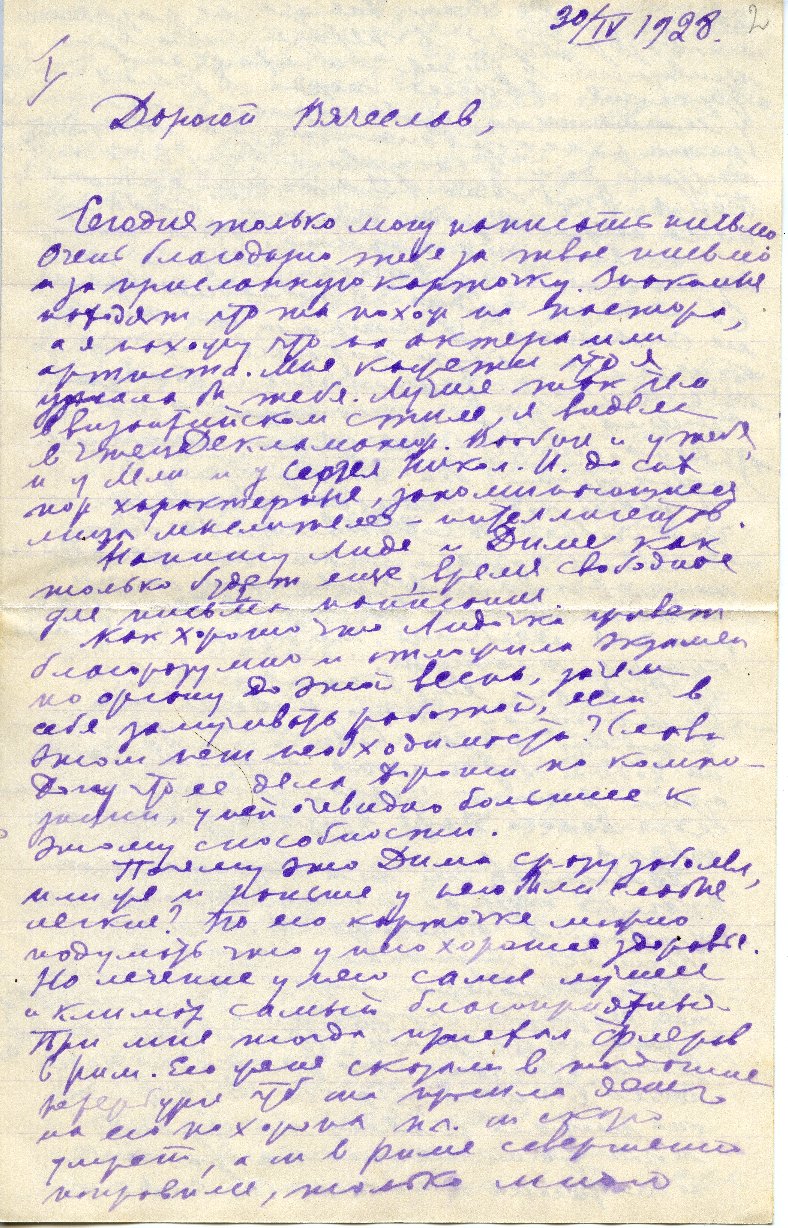 30/IV 1928. 2
I
Дорогой Вячеслав,
Сегодня только могу написать письмо
Очень благодарна тебе за твое письмо
и за присланную карточку. Знакомые
находят что ты похож на пастора,
а я нахожу что на актера или
артиста. Мне кажется что я
узнала бы тебя. Лучше так чем
в византийском стиле, я видела
в чтец Декламатор. Вообще и у тебя,
и у и у Сергея Никол. И. до сих
пор характерные, запоминающиеся
лица мыслителей – интеллигентов.
Напишу Лиде и Диме как
только будет еще время свободное
для письма
Как хорошо что Лидочка
благоразумно и отложила экзамен
по органу до этой весны, зачем
себя замучивать работой, если в
этом нет необходимости? Слава
Богу что ее дела хороши по компо-
зиции, у ней очевидно большие к
этому способности.
Почему это Дима сразу заболел,
или уже и раньше у него были слабые
легкие? По его карточке можно
подумать что у него хорошее здоровье.
Но лечение у него самое лучшее
и климат самый благоприятный.
При мне тогда приехал Флеров
в Рим. Его жене сказали в
Петербурге чтоб она просила денег
на его похороны, скоро
умрет, а он в Риме совершенно
поправился, только много